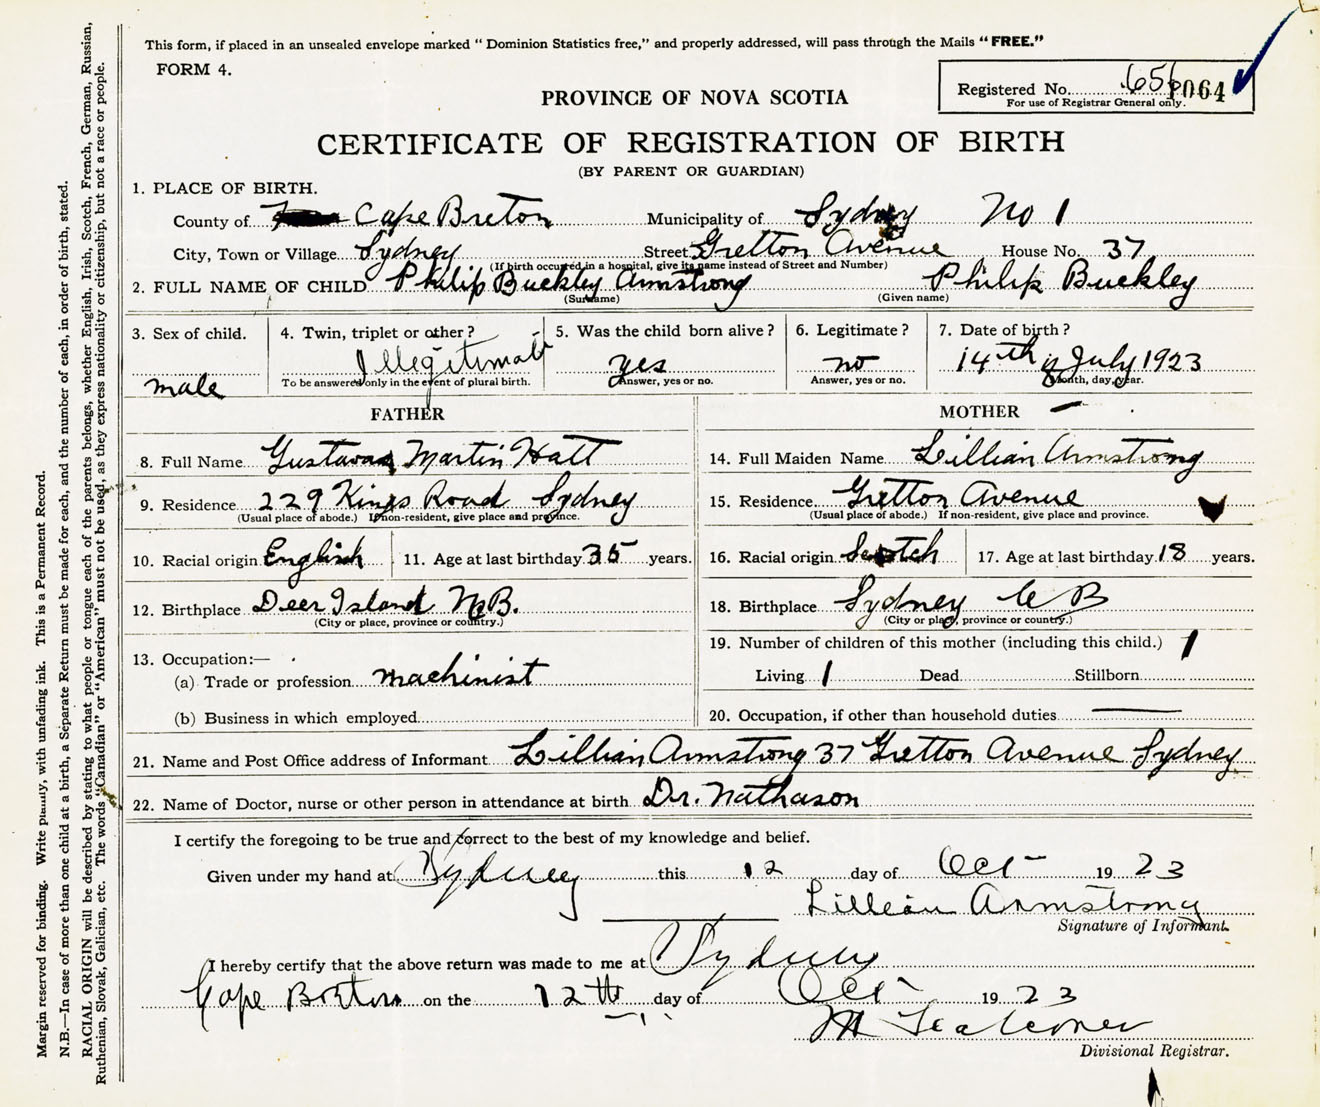 This form, if placed in an unsealed envelope marked " Dominion Statistics free," and properly addressed, will pass through the Mails " FREE."
FORM 4.
Registered No. 656 1064
For use of Registrar General only.
PROVINCE OF NOVA SCOTIA
CERTIFICATE OF REGISTRATION OF BIRTH
(BY PARENT OR GUARDIAN)
1. PLACE OF BIRTH.
County of Cape Breton Municipality of Sydney No 1
City, Town or Village Sydney Street Gretton Avenue House No. 37
(If birth occurred in a hospital, give its name instead of Street and Number)
2. FULL NAME OF CHILD Philip Buckley Armstrong Philip Buckley
(Surname) (Given name)
3. Sex of child. 4. Twin, triplet or other ? 5. Was the child born alive ? 6. Legitimate ? 7. Date of birth ?
male Illegitimate yes no 14th of July 1923
To be answered only in the event of plural birth. Answer, yes or no. Answer, yes or no. Month, day, year.
FATHER MOTHER
8. Full Name Gustavas Martin Hatt 14. Full Maiden Name Lillian Armstrong
9. Residence 229 Kings Road Sydney 15. Residence Gretton Avenue
(Usual place of abode.) If non-resident, give place and province. (Usual place of abode.) If non-resident, give place and province.
10. Racial origin English 11. Age at last birthday 35 years. 16. Racial origin Scotch 17. Age at last birthday 18 years.
12. Birthplace Deer Island N.B. 18. Birthplace Sydney C B
(City or place, province or country.) (City or place, province or country.)
13. Occupation:— 19. Number of children of this mother (including this child.) 1
(a) Trade or profession machinist Living 1 Dead Stillborn
(b) Business in which employed 20. Occupation, if other than household duties
21. Name and Post Office address of Informant Lillian Armstrong 37 Gretton Avenue Sydney
22. Name of Doctor, nurse or other person in attendance at birth Dr. Nathason
I certify the foregoing to be true and correct to the best of my knowledge and belief.
Given under my hand at Sydney this 12 day of Oct 1923
Lillian Armstrong
Signature of Informant.
I hereby certify that the above return was made to me at Sydney
Cape Breton on the 12th day of Oct 1923
Divisional Registrar.
Margin reserved for binding. Write plainly, with unfading ink. This is a Permanent Record.
N.B.—In case of more than one child at a birth, a Separate Return must be made for each, and the number of each, in order of birth, stated.
RACIAL ORIGIN will be described by stating to what people or tongue each of the parents belongs, whether English, Irish, Scotch, French, German, Russian,
Ruthenian, Slovak, Galician, etc. The words "Canadian" or "American" must not be used, as they express nationality or citizenship, but not a race or people.